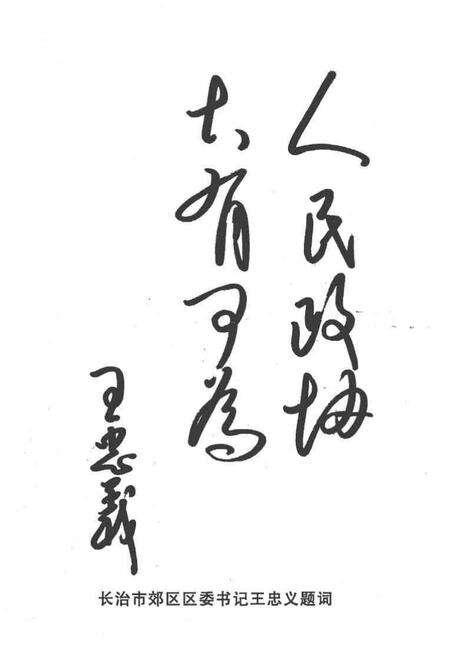 人民政协
大有可为
王忠义
长治市郊区区委书记王忠义题词